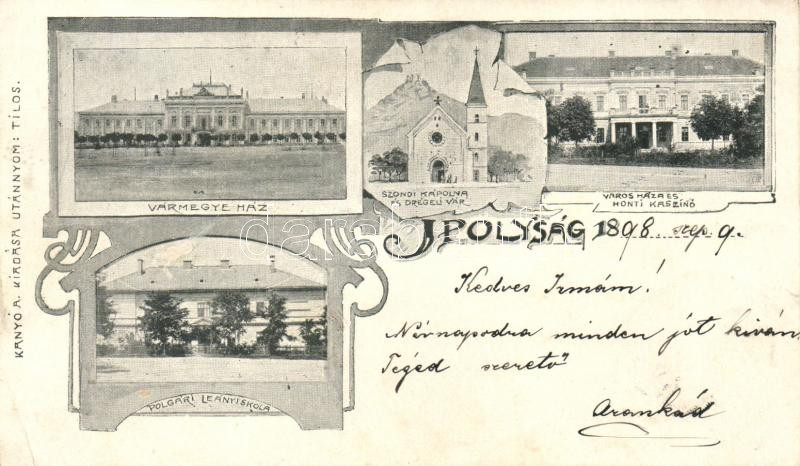 KANYÓ A. KIADÁSA UTÁNNYOM: TILOS.
VÁRMEGYE HÁZ
SZONDI KÁPOLNA
ÉS DRÉGELI VÁR
VÁROS HÁZA ES
HONTI KASZINÓ
IPOLYSÁG 1898. szep. 9.
Kedves Irmám!
Névnapodra minden jót kíván
Téged szerető
Arankád
POLGÁRI LEÁNYISKOLA
darabanth